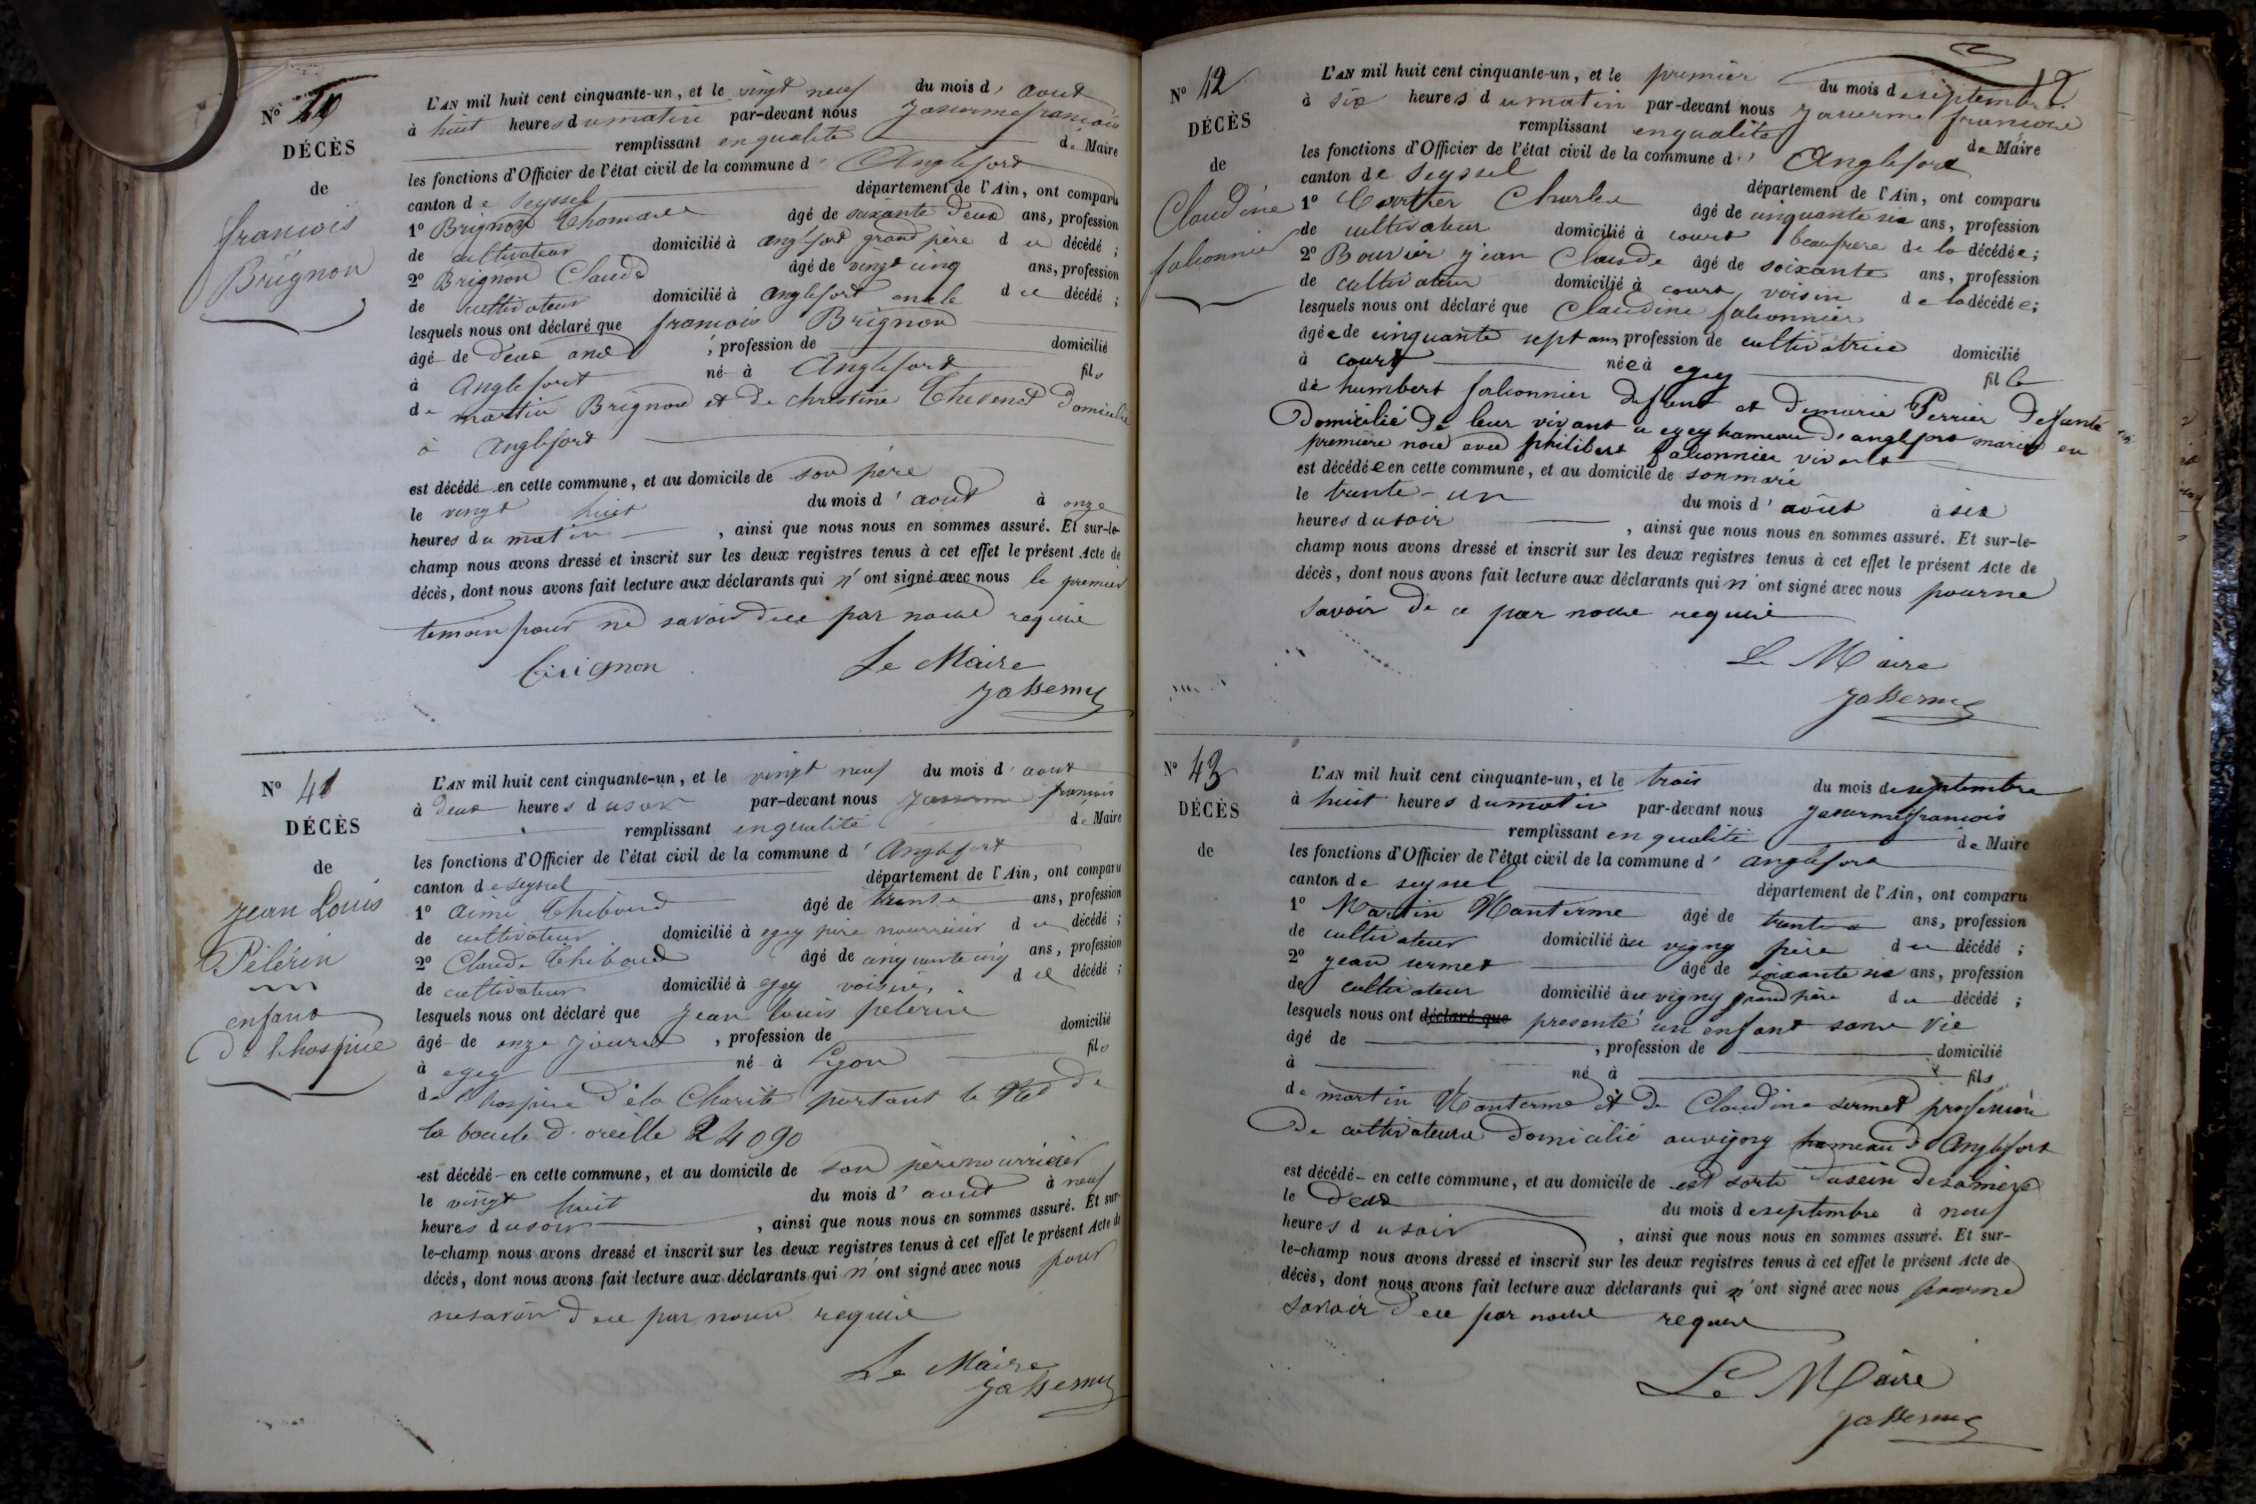 N° 40
DÉCÈS
de
francois
Brignon
L'AN mil huit cent cinquante-un, et le vingt neuf du mois d' aout
à huit heures du matin par-devant nous Jasserme francois
remplissant en qualité de Maire
les fonctions d'Officier de l'état civil de la commune d' Anglefort
canton de Seyssel département de l'Ain, ont comparu
1° Brignon Thomas âgé de soixante deux ans, profession
de cultivateur domicilié à anglefort grand père du décédé ;
2° Brignon Claude âgé de vingt cinq ans, profession
de cultivateur domicilié à anglefort oncle du décédé ;
lesquels nous ont déclaré que francois Brignon
âgé de deux ans , profession de domicilié
à Anglefort né à Anglefort fils
de martin Brignon et de christine Thevenet Domicilié
à Anglefort
est décédé en cette commune, et au domicile de son père
le vingt huit du mois d' aout à onze
heures du matin , ainsi que nous nous en sommes assuré. Et sur-le-
champ nous avons dressé et inscrit sur les deux registres tenus à cet effet le présent Acte de
décès, dont nous avons fait lecture aux déclarants qui n' ont signé avec nous le premier
temoin pour ne savoir de ce par nous requis
Brignon Le Maire
Jasserme
N° 41
DÉCÈS
de
Jean Louis
Pélérin
enfant
De l'hospice
L'AN mil huit cent cinquante-un, et le vingt neuf du mois d' aout
à deux heures du soir par-devant nous Jasserme francois
remplissant en qualité de Maire
les fonctions d'Officier de l'état civil de la commune d' Anglefort
canton de seyssel département de l'Ain, ont comparu
1° aimé Thiboud âgé de trente ans, profession
de cultivateur domicilié à egey père nourricier du décédé ;
2° Claude Thiboud âgé de cinquante cinq ans, profession
de cultivateur domicilié à egey voisin du décédé ;
lesquels nous ont déclaré que Jean Louis pelerin
âgé de onze jours , profession de domicilié
à egey né à Lyon fils
de l'hospice de la Charité portant le N° de
la boucle d'oreille 24090
est décédé en cette commune, et au domicile de son père nourricier
le vingt huit du mois d' aout à neuf
heures du soir , ainsi que nous nous en sommes assuré. Et sur-
le-champ nous avons dressé et inscrit sur les deux registres tenus à cet effet le présent Acte de
décès, dont nous avons fait lecture aux déclarants qui n' ont signé avec nous pour
ne savoir de ce par nous requis
Le Maire
Jasserme
12
N° 42
DÉCÈS
de
Claudine
falconnier
L'AN mil huit cent cinquante-un, et le premier du mois de septembre
à six heures du matin par-devant nous Jasserme francois
remplissant en qualité de Maire
les fonctions d'Officier de l'état civil de la commune d' Anglefort
canton de Seyssel département de l'Ain, ont comparu
1° Charles âgé de cinquante six ans, profession
de cultivateur domicilié à court beaufrere de la décédée ;
2° Bouvier jean Claude âgé de soixante ans, profession
de cultivateur domicilié à court voisin de la décédée ;
lesquels nous ont déclaré que Claudine falconnier
âgée de cinquante sept ans profession de cultivatrice domicilié
à court née à egey fille
de humbert falconnier defunt et de marie Perrier defunte
Domicilié de leur vivant a egey hameau d'anglefort mariée en
premiere noce avec philibert falconnier vivant
est décédée en cette commune, et au domicile de son mari
le trente-un du mois d' aout à six
heures du soir , ainsi que nous nous en sommes assuré. Et sur-le-
champ nous avons dressé et inscrit sur les deux registres tenus à cet effet le présent Acte de
décès, dont nous avons fait lecture aux déclarants qui n' ont signé avec nous pour ne
savoir de ce par nous requis
Le Maire
Jasserme
N° 43
DÉCÈS
de
L'AN mil huit cent cinquante-un, et le trois du mois de septembre
à huit heures du matin par-devant nous Jasserme francois
remplissant en qualité de Maire
les fonctions d'Officier de l'état civil de la commune d' anglefort
canton de seyssel département de l'Ain, ont comparu
1° Martin Nanterme âgé de trente ans, profession
de cultivateur domicilié àu vigny père du décédé ;
2° jean sermet âgé de soixante six ans, profession
de cultivateur domicilié àu vigny grand père du décédé ;
lesquels nous ont déclaré que presenté un enfant sans vie
âgé de , profession de domicilié
à né à fils
de martin Nanterme et de Claudine sermet profession
De cultivateurs domicilié au vigny hameau d'Anglefort
est décédé en cette commune, et au domicile de est sorti du sein de sa mère
le deux du mois de septembre à neuf
heures du soir , ainsi que nous nous en sommes assuré. Et sur-
le-champ nous avons dressé et inscrit sur les deux registres tenus à cet effet le présent Acte de
décès, dont nous avons fait lecture aux déclarants qui n' ont signé avec nous pour ne
savoir de ce par nous requis
Le Maire
Jasserme